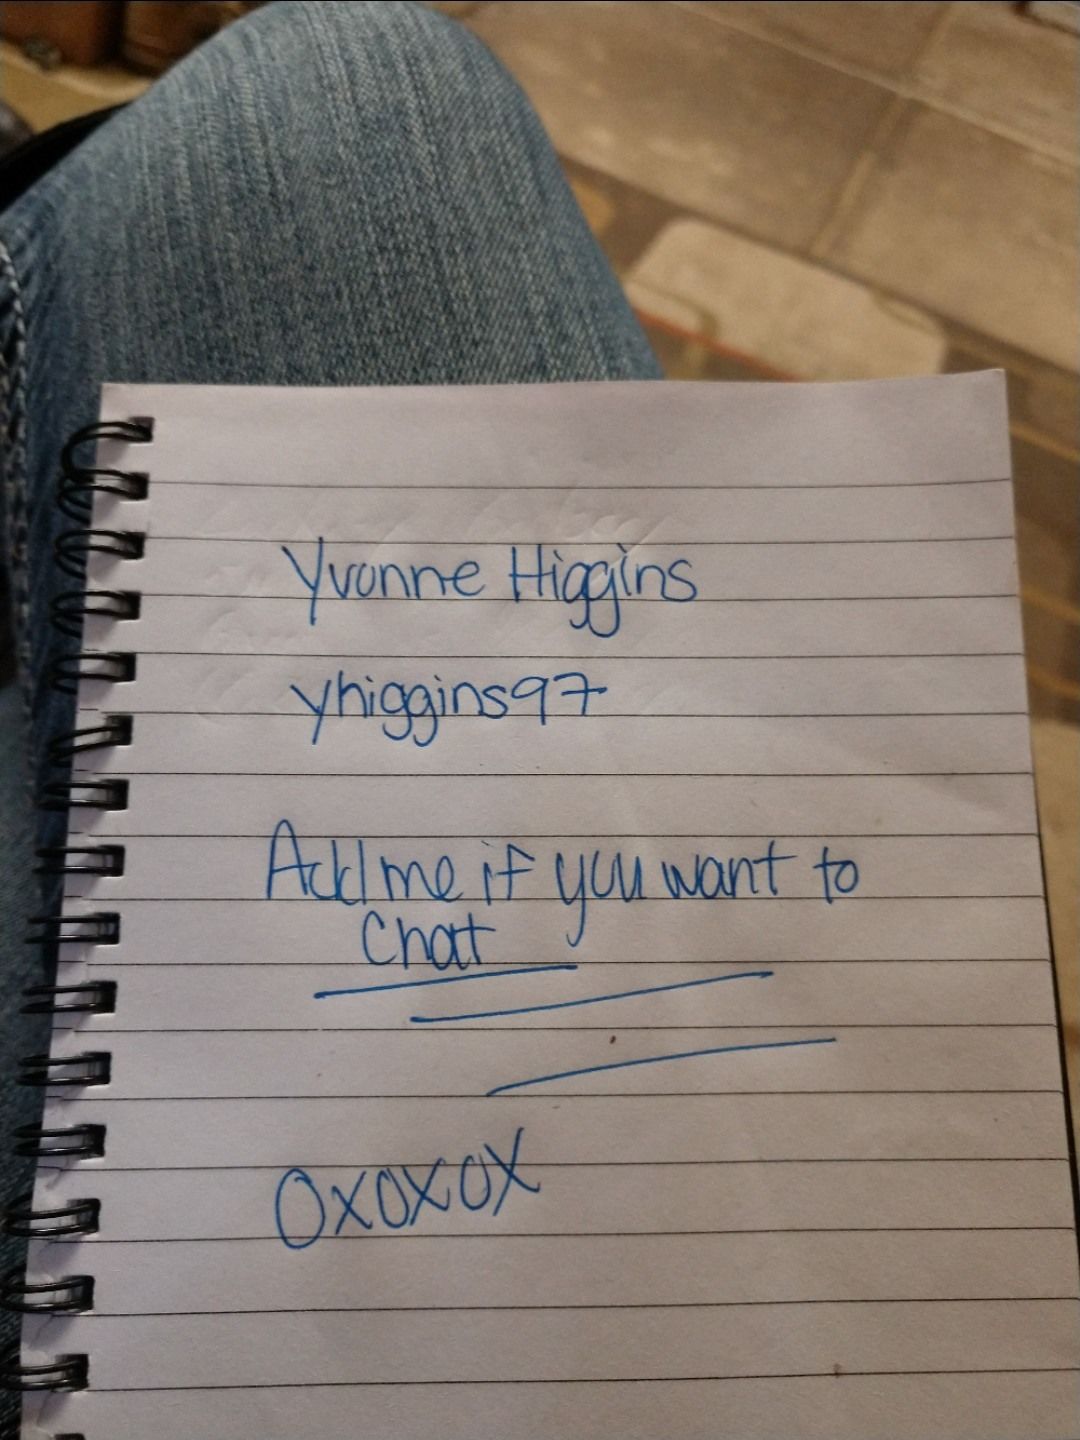 Yvonne Higgins
yhiggins97
Add me if you want to
Chat
OXOXOX